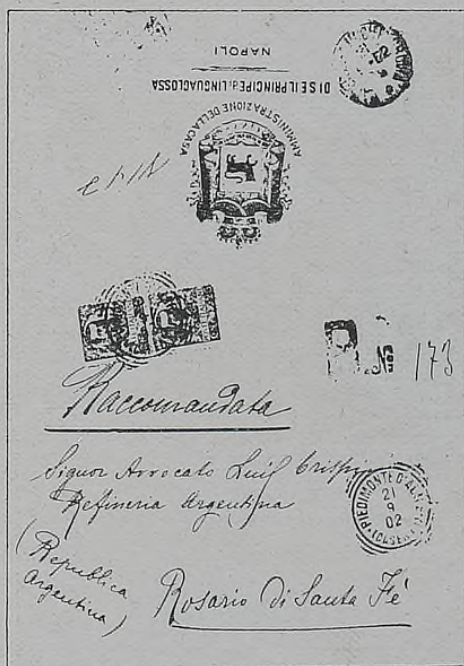 NAPOLI
DI S E IL PRINCIPE di LINGUAGLOSSA
AMMINISTRAZIONE DELLA CASA
No 173
Raccomandata
Signor Avvocato Luigi Crispin
Refineria Argentina
PIEDIMONTE D'ALIFE
(CASERTA)
21
9
02
(Republica
Argentina)
Rosario di Santa Fé